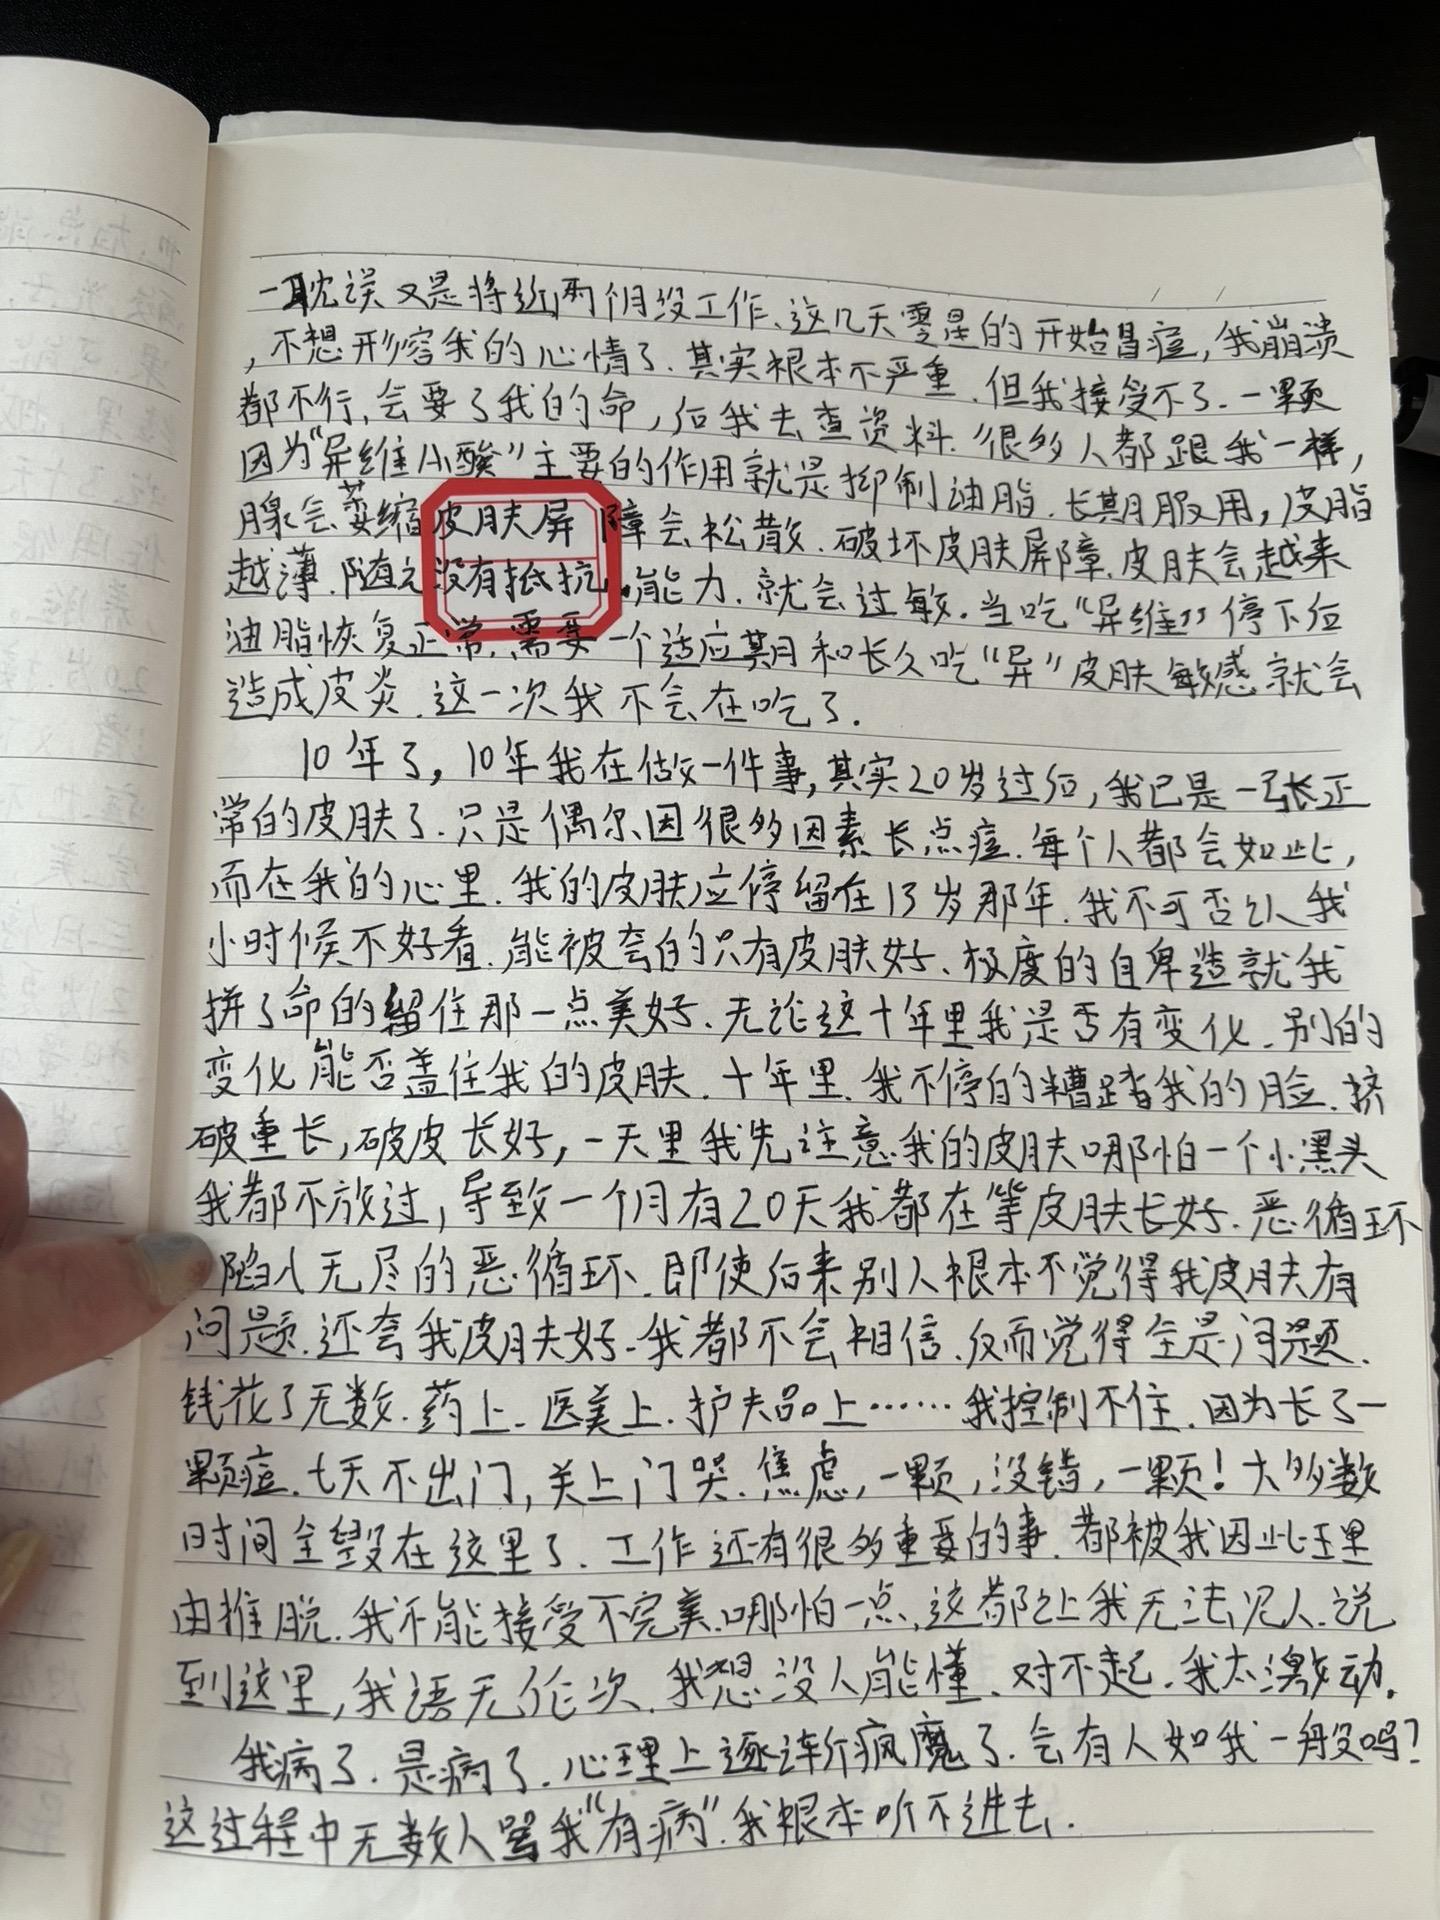 一耽误又是将近两个月没工作、这几天零星的开始冒痘,我崩溃
,不想形容我的心情了.其实根本不严重.但我接受不了.一颗
都不行,会要了我的命,后我去查资料.很多人都跟我一样,
因为“异维A酸”主要的作用就是抑制油脂.长期服用,皮脂
腺会萎缩皮肤屏障会松散.破坏皮肤屏障.皮肤会越来
越薄.随之没有抵抗能力.就会过敏.当吃“异维”停下后
油脂恢复正常.需要一个适应期和长久吃“异”皮肤敏感就会
造成皮炎.这一次我不会在吃了.
10年了,10年我在做一件事,其实20岁过后,我已是一张正
常的皮肤了.只是偶尔因很多因素长点痘.每个人都会如此,
而在我的心里.我的皮肤应停留在13岁那年.我不可否认我
小时候不好看.能被夸的只有皮肤好、极度的自卑造就我
拼了命的留住那一点美好.无论这十年里我是否有变化.别的
变化能否盖住我的皮肤.十年里.我不停的糟蹋我的脸.挤
破重长,破皮长好,一天里我先注意我的皮肤哪怕一个小黑头
我都不放过,导致一个月有20天我都在等皮肤长好.恶循环
陷入无尽的恶循环.即使后来别人根本不觉得我皮肤有
问题.还夸我皮肤好.我都不会相信.反而觉得全是问题.
钱花了无数.药上.医美上.护夫品上……我控制不住.因为长了一
颗痘.七天不出门,关上门哭.焦虑,一颗,没错,一颗!大多数
时间全毁在这里了.工作还有很多重要的事.都被我因此理
由推脱.我不能接受不完美.哪怕一点.这都让我无法见人.说
到这里,我语无伦次.我想没人能懂.对不起.我太激动.
我病了.是病了.心理上逐渐疯魔了.会有人如我一般吗?
这过程中无数人骂我“有病”.我根本听不进去.